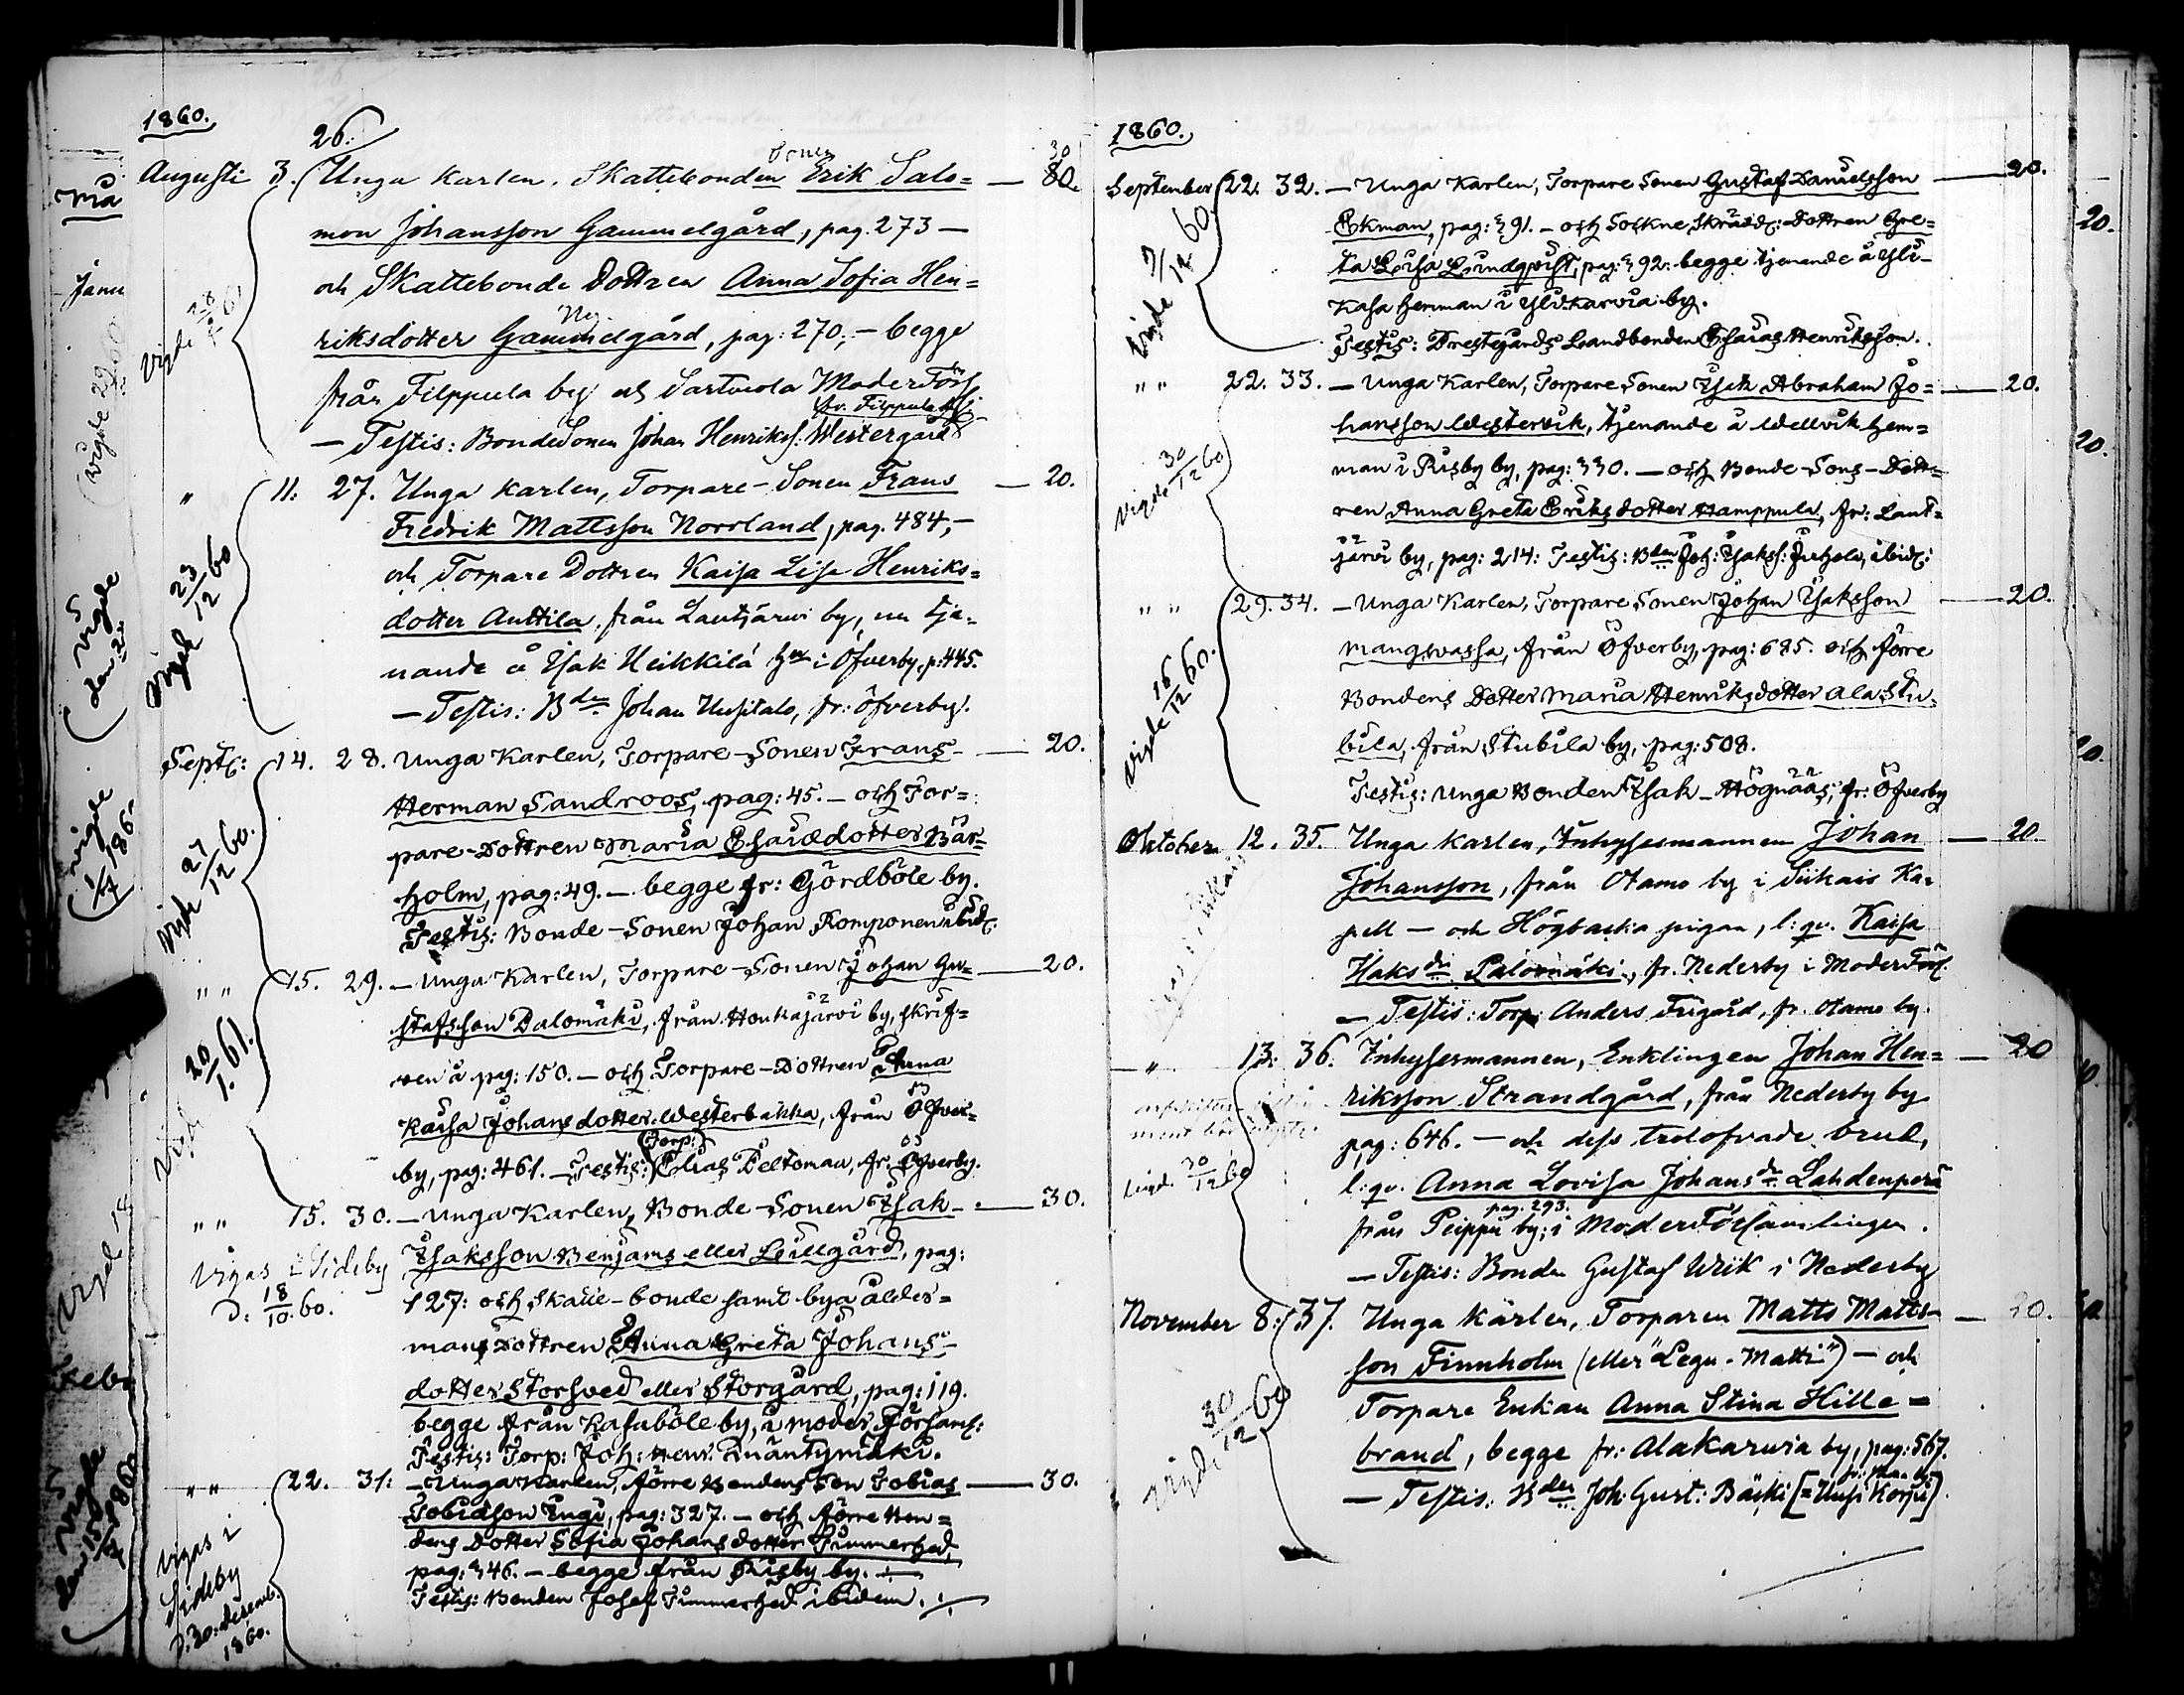 1860.
26.
Augusti 3. Unga karlen, Skattebonden Sonen Erik Salo= — 80. 30
mon Johansson Gammelgård, pag. 273 —
och Skattebonde Dottren Anna Sofia Hen=
riksdotter Gammelgård, Ny pag: 270; — begge
från Filppula by och Sartuola Moder Förs
— Testis: BondeSonen Johan Henrikss. Westergård fr. Filppula by
Vigde 60
" 11. 27. Unga karlen, Torpare-Sonen Frans — 20.
Fredrik Mattsson Norrland, pag. 484, —
och Torpare Dottren Kaisa Lisa Henriks=
dotter Anttila, från Lautjärwi by, nu tje-
nande å Isak Heikkilä hn i Öfverby, p: 445.
— Testis: Bden Johan Uusitalo, fr: Öfverby.
Vigde 23/12 60
Septr: 14. 28. Unga Karlen, Torpare-Sonen Frans — 20.
Herman Sandroos, pag: 45. — och Tor=
pare-Dottren Maria Esaiædotter Bär=
holm, pag: 49. — begge fr: Gördböle by.
Testis: Bonde-Sonen Johan Komponen ibid:
Vigde 27/12 60.
" " 15. 29. — Unga Karlen, Torpare-Sonen Johan Gu= — 20.
stafsson Palomäki, från Honkajärvi by, skrif=
ven å pag: 150. — och Torpare-Dottren Anna
Kaisa Johansdotter Westerbakka, från Öfver=
by, pag: 461. — Testis: (Torp:) Elias Peltomaa, fr: Öfverby.
Vigde 20/1. 61.
" " 15. 30. — Unga Karlen, Bonde-Sonen Isak — 30.
Isaksson Benjams eller Lillgård, pag:
127: och Skatte-bonde samt byaålder=
mans Dottren Anna Greta Johans=
dotter Storsved eller Storgård, pag: 119.
begge från Kasaböle by, i moder Församl:
Testis: Torp: Joh: Henr: Knäntynmäki.
Vigas i Sideby
D: 18/10. 60.
" " 22. 31: — Unga Karlen, förre Bondens Son Tobias — 30.
Tobiasson Engi, pag: 327. — och förre Bon=
dens Dotter Sofia Johansdotter Timmerhed,
pag: 346. — begge från Risby by.
Testis: Bonden Josef Timmerhed ibidem.
Vigas i
Sideby
D. 30: decemb.
1860.
1860.
September 22. 32. — Unga Karlen, Torpare Sonen Gustaf Danielsson — 20.
Ekman, pag: 391. — och Sockne Skrädd: Dottren Gre=
ta Lovisa Lundqvist, pag: 392. begge tjenande å Yli-
Kasa Herman i Ylikarvia by.
Testis: Prestgårds Landbonden Esaias Henriksson.
Vigde 7/12 60.
" " 22. 33. — Unga Karlen, Torpare Sonen Isak Abraham Jo= — 20.
hansson Westervik, tjenande å Wellvik hem=
man i Risby by, pag: 330. — och Bonde-Sons-Dott=
ren Anna Greta Eriksdotter Hamppula, fr: Laut=
järvi by, pag: 214: Testis: Bden Joh: Isakss: Juhola, ibid:
Vigde 30/12 60
" " 29. 34. — Unga Karlen, Torpare Sonen Johan Isaksson — 20.
Mangsvassa, från Öfverby, pag: 685. och förre
Bondens Dotter Maria Henriksdotter Ala Stu
bila, från Stubila by, pag: 508.
Testis: Unga Bonden Isak Högnääs, fr: Öfverby
Vigde 16/12 60.
Oktober 12. 35. Unga karlen, Inhysesmannen Johan — 20
Johansson, från Otamo by i Siikais Ka-
pell — och Högbacka pigan, l: qv. Kaisa
Isaksdr Palomäki, fr. Nederby i ModerFörs.
— Testis: Torp: Anders Frigård, fr. Otamo by.
— " 13: 36. Inhysesmannen, Enklingen Johan Hen= — 20
riksson Strandgård, från Nederby by
pag: 646. — och dess trolofvade brud,
l: qv. Anna Lovisa Johansdr Lahdenperä
från Peippu by; pag. 293. i ModerFörsamlingen.
— Testis: Bonden Gustaf Wiik i Nederby
Vigd. 30/12 60
November 8. 37. Unga Karlen, Torparen Matts Matts= — 20.
son Finnholm (eller "Legu-Matti") — och
Torpare Enkan Anna Stina Hille=
brand, begge fr: Alakarvia by, pag: 567.
— Testis: Bden Joh: Gust: Bäski [= Uusi Korpi].
Vigde 30/12 60